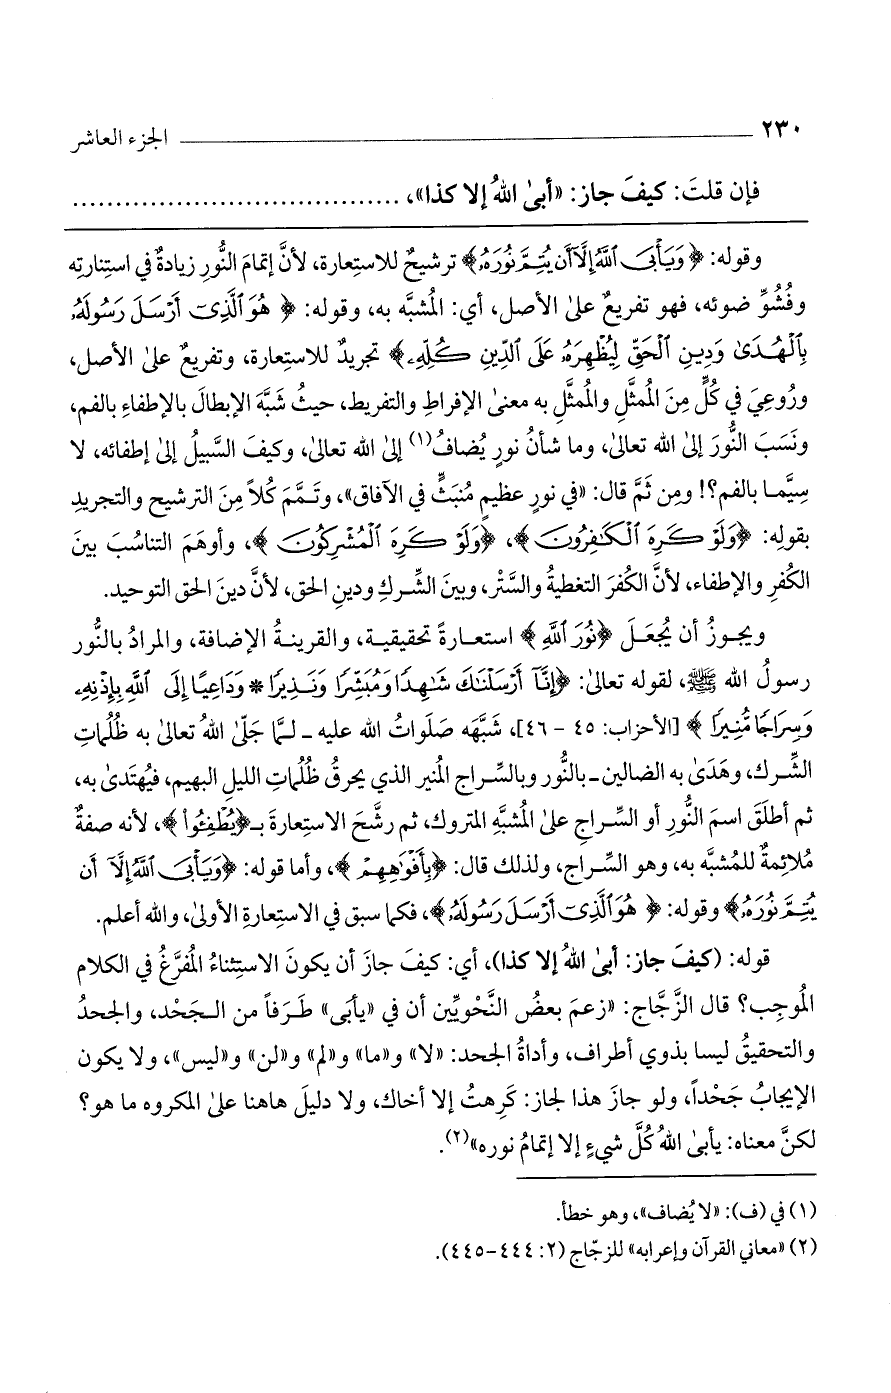 ٢٣٠ الجزء العاشر
فإن قلتَ: كيفَ جاز: «أبىٰ اللهُ إلا كذا»، ......................................
وقوله: ﴿وَيَأْبَى ٱللَّهُ إِلَّآ أَن يُتِمَّ نُورَهُۥ﴾ ترشيحٌ للاستِعارة، لأنَّ إتمامَ النُّورِ زيادةٌ في استِنارتِه
وفُشُوِّ ضوئه، فهو تفريعٌ علىٰ الأصل، أي: المُشبَّه به، وقوله: ﴿هُوَ ٱلَّذِىٓ أَرْسَلَ رَسُولَهُۥ
بِٱلْهُدَىٰ وَدِينِ ٱلْحَقِّ لِيُظْهِرَهُۥ عَلَى ٱلدِّينِ كُلِّهِۦ﴾ تجريدٌ للاستِعارة، وتفريعٌ علىٰ الأصل،
ورُوعِيَ في كُلٍّ مِنَ المُمثَّلِ والمُمثَّلِ به معنىٰ الإفراطِ والتفريط، حيثُ شَبَّهَ الإبطالَ بالإطفاءِ بالفم،
ونَسَبَ النُّورَ إلىٰ الله تعالىٰ، وما شأنُ نورٍ يُضافُ(١) إلىٰ الله تعالىٰ، وكيفَ السَّبيلُ إلىٰ إطفائه، لا
سِيَّما بالفم؟! ومِن ثَمَّ قال: «في نورٍ عظيمٍ مُنبَثٍّ في الآفاق»، وتَمَّمَ كُلاً مِنَ الترشيح والتجريدِ
بقولِه: ﴿وَلَوْ كَرِهَ ٱلْكَٰفِرُونَ﴾، ﴿وَلَوْ كَرِهَ ٱلْمُشْرِكُونَ﴾، وأوهَمَ التناسُبَ بينَ
الكُفرِ والإطفاء، لأنَّ الكُفرَ التغطيةُ والسَّتْر، وبينَ الشِّركِ ودينِ الحق، لأنَّ دينَ الحق التوحيد.
ويجوزُ أن يُجعَلَ ﴿نُورَ ٱللَّهِ﴾ استعارةً تحقيقية، والقرينةُ الإضافة، والمرادُ بالنُّور
رسولُ الله ﷺ، لقوله تعالىٰ: ﴿إِنَّآ أَرْسَلْنَٰكَ شَٰهِدًا وَمُبَشِّرًا وَنَذِيرًا * وَدَاعِيًا إِلَى ٱللَّهِ بِإِذْنِهِۦ
وَسِرَاجًا مُّنِيرًا﴾ [الأحزاب: ٤٥ - ٤٦]، شَبَّهَه صَلَواتُ الله عليه ـ لـمَّا جَلّىٰ اللهُ تعالىٰ به ظُلُماتِ
الشِّرك، وهَدَىٰ به الضالين ـ بالنُّور وبالسِّراج المُنير الذي يحرقُ ظُلُماتِ الليلِ البهيم، فيُهتَدىٰ به،
ثم أطلَقَ اسمَ النُّورِ أو السِّراجِ علىٰ المُشبَّهِ المتروك، ثم رشَّحَ الاستِعارةَ بـ﴿يُطْفِـُٔوا۟﴾، لأنه صفةٌ
مُلائِمةٌ للمُشبَّه به، وهو السِّراج، ولذلك قال: ﴿بِأَفْوَٰهِهِمْ﴾، وأما قوله: ﴿وَيَأْبَى ٱللَّهُ إِلَّآ أَن
يُتِمَّ نُورَهُۥ﴾ وقوله: ﴿هُوَ ٱلَّذِىٓ أَرْسَلَ رَسُولَهُۥ﴾، فكما سبق في الاستِعارةِ الأولىٰ، والله أعلم.
قوله: (كيفَ جاز: أبىٰ اللهُ إلا كذا)، أي: كيفَ جازَ أن يكونَ الاستِثناءُ المُفرَّغُ في الكلام
المُوجِب؟ قال الزَّجَّاج: «زعمَ بعضُ النَّحْويِّين أن في «يأبَى» طَرَفاً من الـجَحْد، والجحدُ
والتحقيقُ ليسا بذوي أطراف، وأداةُ الجحد: «لا» و«ما» و«لم» و«لن» و«ليس»، ولا يكون
الإيجابُ جَحْداً، ولو جازَ هذا لجاز: كَرِهتُ إلا أخاك، ولا دليلَ هاهنا علىٰ المكروه ما هو؟
لكنَّ معناه: يأبىٰ اللهُ كُلَّ شيءٍ إلا إتمامُ نوره»(٢).
(١) في (ف): «لا يُضاف»، وهو خطأ.
(٢) «معاني القرآن وإعرابه» للزجّاج (٢: ٤٤٤-٤٤٥).